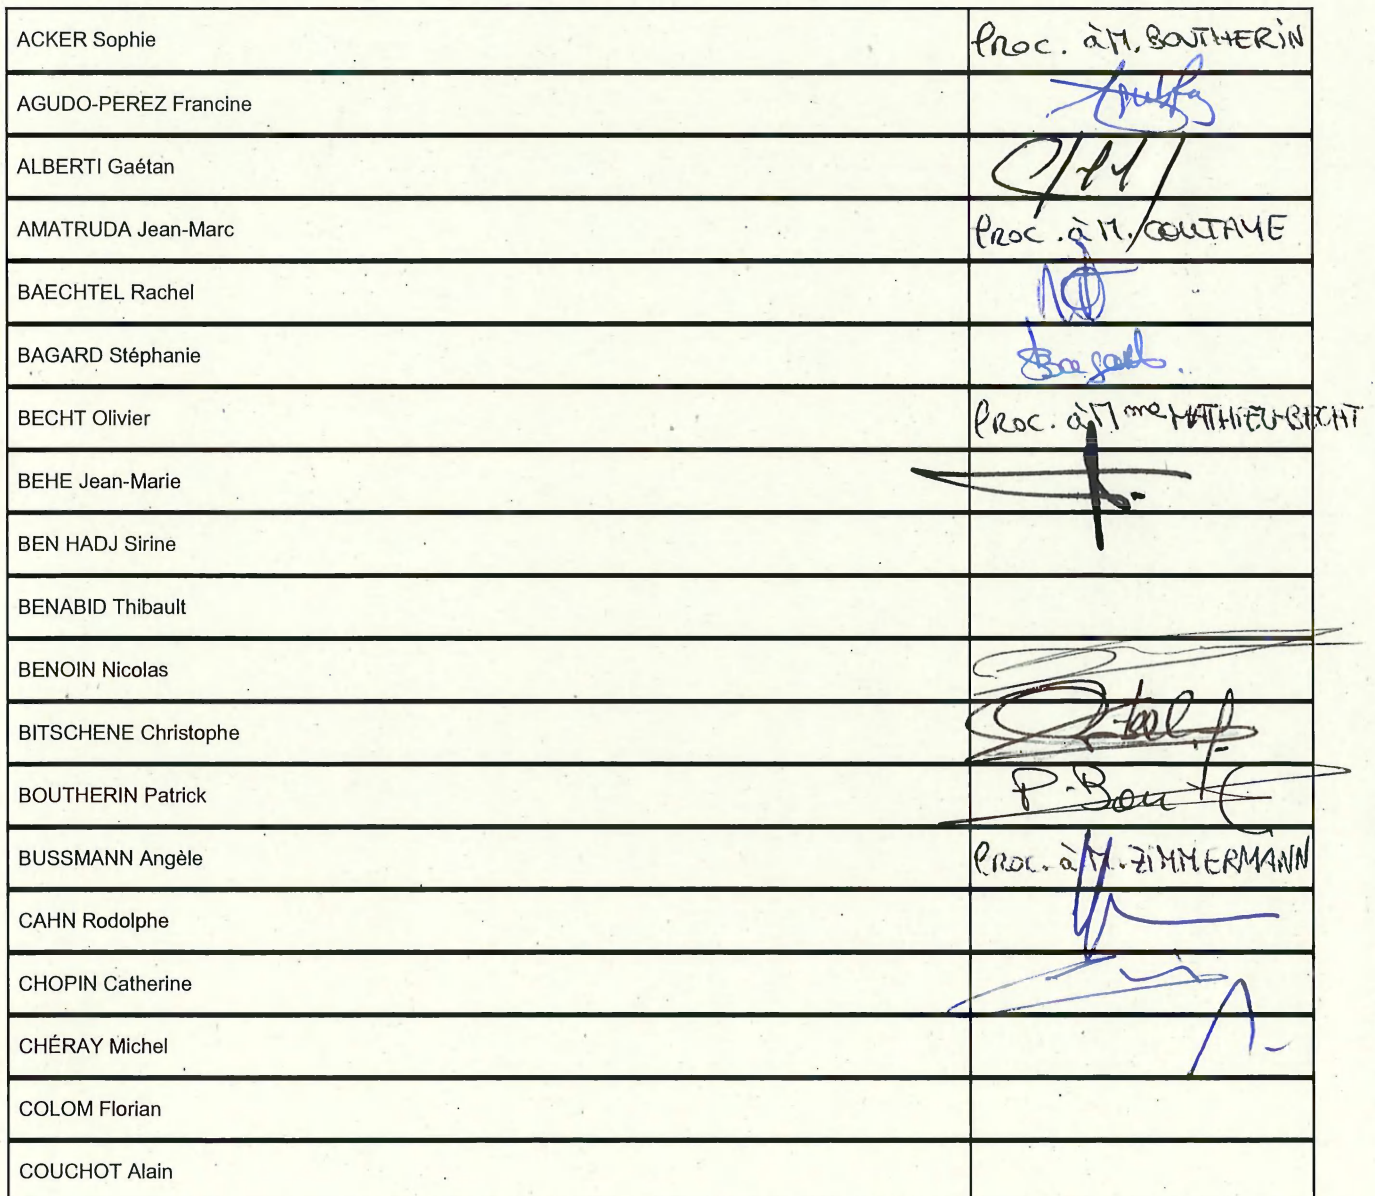 ACKER Sophie
Proc. à M. BOUTHERIN
AGUDO-PEREZ Francine
ALBERTI Gaétan
AMATRUDA Jean-Marc
Proc. à M. COUTAYE
BAECHTEL Rachel
BAGARD Stéphanie
BECHT Olivier
Proc. à Mme MATHIEU-BECHT
BEHE Jean-Marie
BEN HADJ Sirine
BENABID Thibault
BENOIN Nicolas
BITSCHENE Christophe
BOUTHERIN Patrick
P. Bou
BUSSMANN Angèle
Proc. à M. ZIMMERMANN
CAHN Rodolphe
CHOPIN Catherine
CHÉRAY Michel
COLOM Florian
COUCHOT Alain